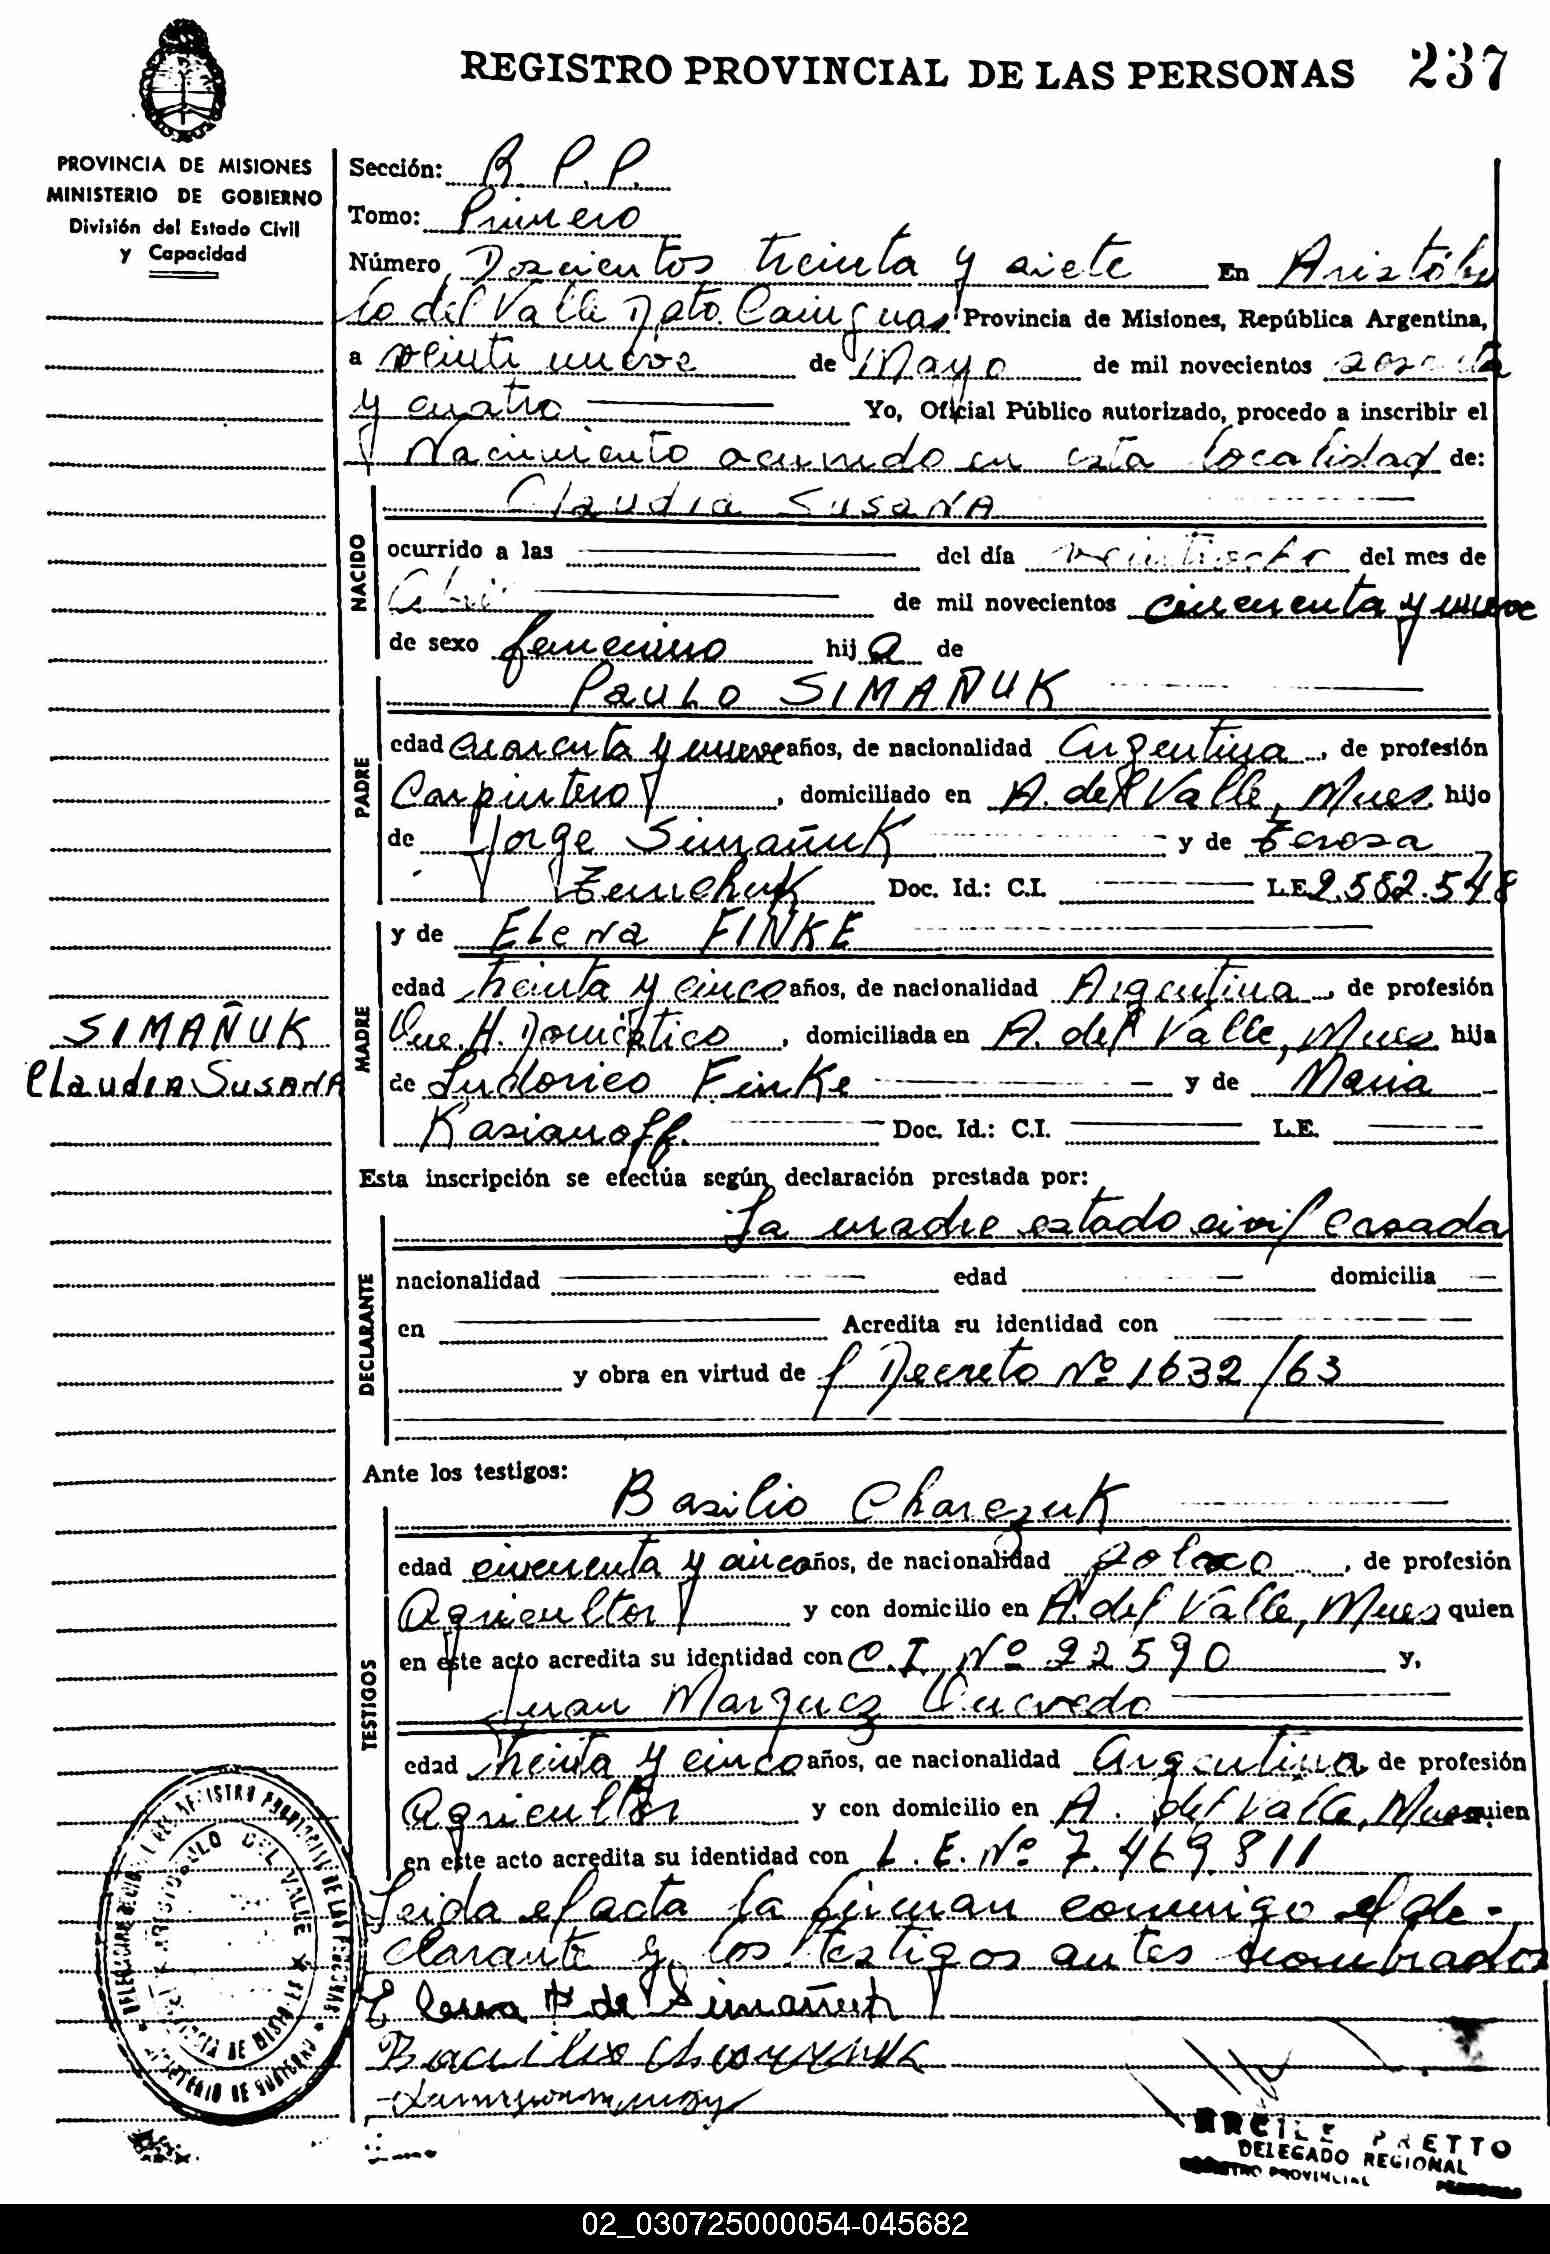 REGISTRO PROVINCIAL DE LAS PERSONAS 237
PROVINCIA DE MISIONES
MINISTERIO DE GOBIERNO
División del Estado Civil
y Capacidad
Sección: B. P. P.
Tomo: Primero
Número Doscientos treinta y siete En Aristóbu
lo del Valle Dpto. Cainguas Provincia de Misiones, República Argentina,
a veinti nueve de Mayo de mil novecientos sesenta
y cuatro Yo, Oficial Público autorizado, procedo a inscribir el
Nacimiento ocurrido en esta localidad de:
NACIDO
Claudia Susana
ocurrido a las del día veintiocho del mes de
Abril de mil novecientos cincuenta y nueve
de sexo femenino hij a de
PADRE
Paulo SIMAÑUK
edad cuarenta y nueve años, de nacionalidad Argentina, de profesión
Carpintero, domiciliado en A. del Valle, Mnes. hijo
de Jorge Simañuk y de Teresa
Zemchuk Doc. Id.: C.I. L.E. 2.582.548
MADRE
y de Elena FINKE
edad treinta y cinco años, de nacionalidad Argentina, de profesión
Que. H. Doméstico, domiciliada en A. del Valle, Mnes hija
de Ludovico Finke y de Maria
Kasianoff. Doc. Id.: C.I. L.E.
SIMAÑUK
Claudia Susana
Esta inscripción se efectúa según declaración prestada por:
DECLARANTE
La madre estado civil casada
nacionalidad edad domicilia
en Acredita su identidad con
y obra en virtud de Decreto Nº 1632/63
Ante los testigos:
TESTIGOS
Basilio Charczuk
edad cincuenta y cinco años, de nacionalidad polaco, de profesión
Agricultor y con domicilio en A. del Valle, Mnes quien
en este acto acredita su identidad con C.I. Nº 22590 y,
Juan Marquez Quevedo
edad treinta y cinco años, de nacionalidad Argentina, de profesión
Agricultor y con domicilio en A. del Valle, Mnes quien
en este acto acredita su identidad con L.E. Nº 7.469.811
Leida el acta la firman conmigo el de-
clarante y los testigos antes nombrados
Elena F de Simañuk
Basilio
ARISTOBULO DEL VALLE
PROVINCIA DE MISIONES
MINISTERIO DE GOBIERNO
ARCILE PRETTO
DELEGADO REGIONAL
REGISTRO PROVINCIAL
PERSONAS
02_030725000054-045682